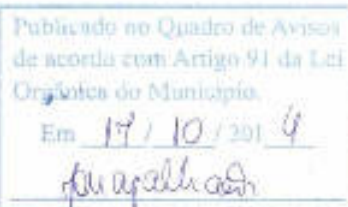 Publicado no Quadro de Avisos
de acordo com Artigo 91 da Lei
Orgânica do Município.
Em 17 / 10 / 201 4